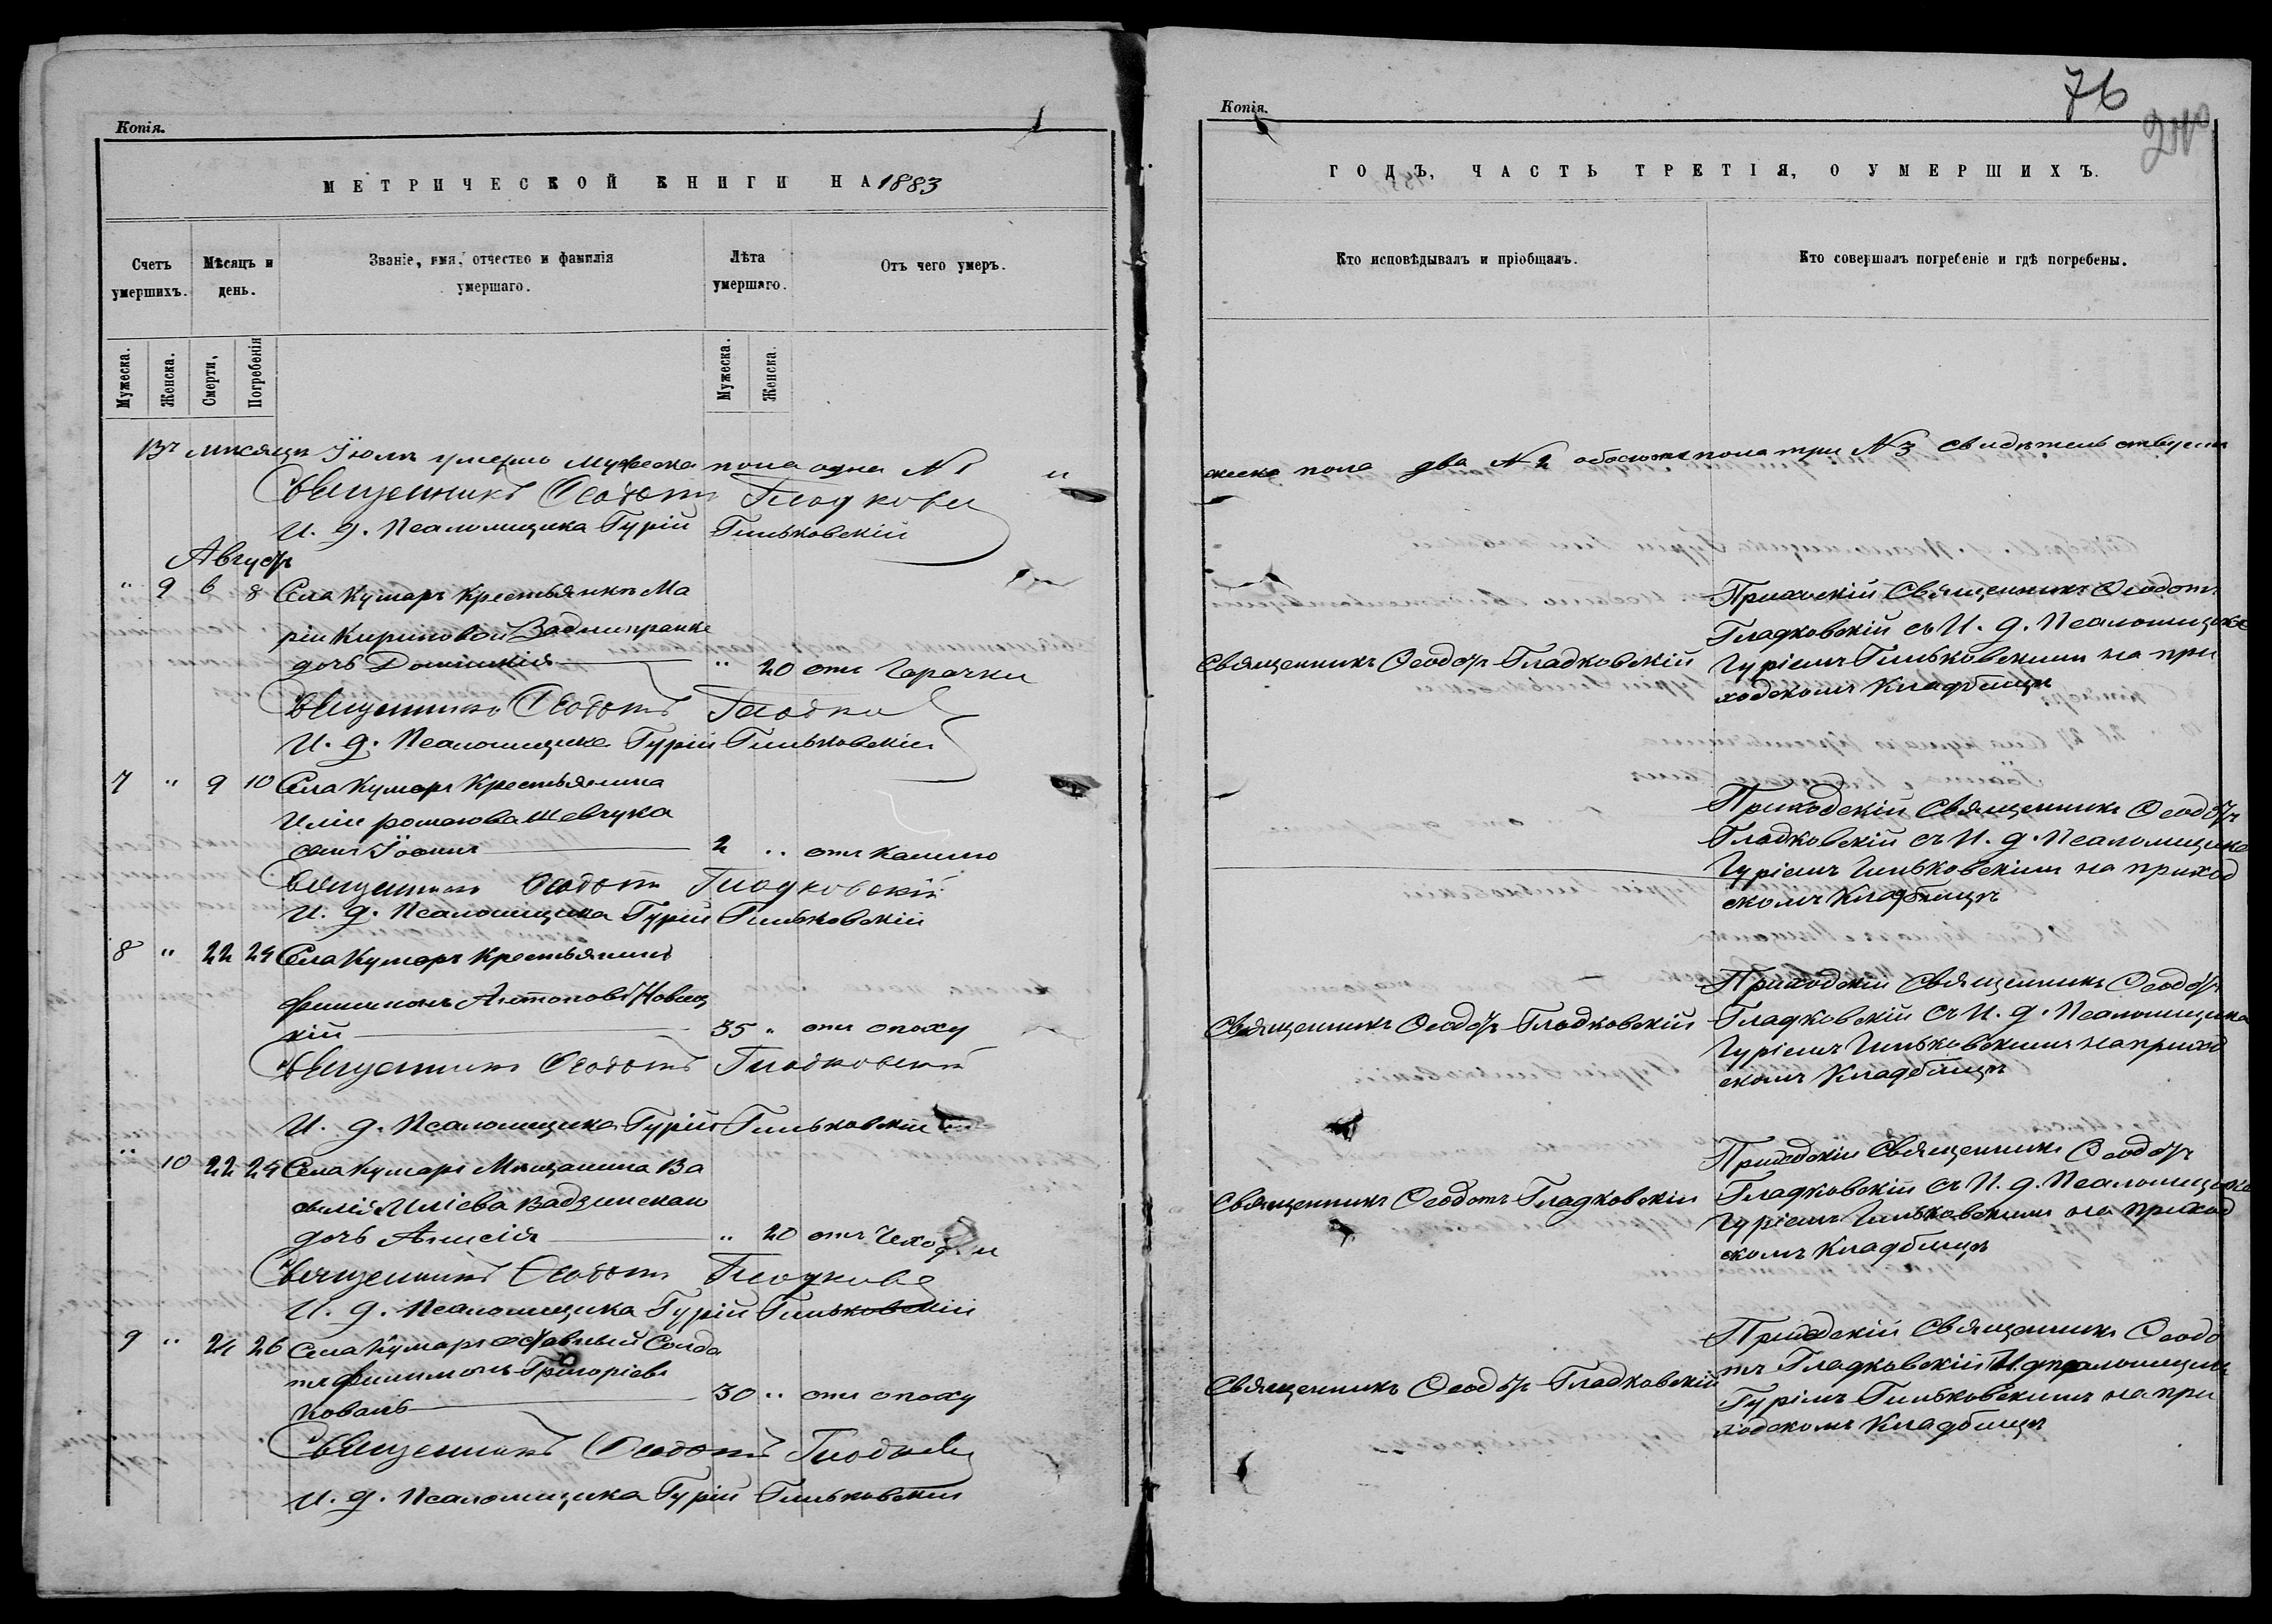 Копія.
МЕТРИЧЕСКОЙ КНИГИ НА 1883
Счетъ умершихъ.
Мѣсяцъ и день.
Званіе, имя, отчество и фамилія умершаго.
Лѣта умершаго.
Отъ чего умеръ.
Мужеска.
Женска.
Смерти,
Погребенія
Мужеска.
Женска.
Въ мѣсяцѣ Іюлѣ умерло Мужеска пола одна № 1 и
Священникъ Ѳеодотъ
И. д. Псаломщика Гурій Гильковскій
Августъ
" 9 6 8 Села Кумаръ Крестьянкѣ Ма
ріи Кириловой
дочь " 20 отъ Гарачки
Священникъ Ѳеодотъ
И. д. Псаломщика Гурій Гильковскій
7 " 9 10 Села Кумаръ Крестьянина
Иліи романова Шевчука
сынъ Іоаннъ 2 " отъ кашлю
Священникъ Ѳеодотъ Гладковскій
И. д. Псаломщика Гурій Гильковскій
8 " 22 24 Села Кумаръ Крестьянинъ
Филимонъ Антоновъ Новиц
кій 35 " отъ опоху
Священникъ Ѳеодотъ Гладковскій
И. д. Псаломщика Гурій Гильковскій
" 10 22 24 Села Кумаръ Мѣщанина Ва
силія Иліева Вадзинскаго
дочь Анисія " 20 отъ
Священникъ Ѳеодотъ
И. д. Псаломщика Гурій Гильковскій
9 " 24 26 Села Кумаръ отставный Солда
тъ Филимонъ Григоріевъ
Коваль 30 " отъ опоху
Священникъ Ѳеодотъ
И. д. Псаломщика Гурій Гильковскій
Копія.
76
ГОДЪ, ЧАСТЬ ТРЕТІЯ, О УМЕРШИХЪ.
Кто исповѣдывалъ и пріобщалъ.
Кто совершалъ погребеніе и гдѣ погребены.
женска пола два № 2 обоего пола три № 3
Священникъ Ѳеодотъ Гладковскій
Приходскій Священникъ Ѳеодотъ
Гладковскій съ И. д. Псаломщика
Гуріемъ Гильковскимъ на при
ходскомъ Кладбищѣ
Приходскій Священникъ Ѳеодотъ
Гладковскій съ И. д. Псаломщика
Гуріемъ Гильковскимъ на приход
скомъ Кладбищѣ
Священникъ Ѳеодотъ Гладковскій
Приходскій Священникъ Ѳеодотъ
Гладковскій съ И. д. Псаломщика
Гуріемъ Гильковскимъ на приход
скомъ Кладбищѣ
Священникъ Ѳеодотъ Гладковскій
Приходскій Священникъ Ѳеодотъ
Гладковскій съ И. д. Псаломщика
Гуріемъ Гильковскимъ на приход
скомъ Кладбищѣ
Священникъ Ѳеодотъ Гладковскій
Приходскій Священникъ Ѳеодо
тъ Гладковскій И. д. псаломщика
Гуріемъ Гильковскимъ на при
ходскомъ Кладбищѣ